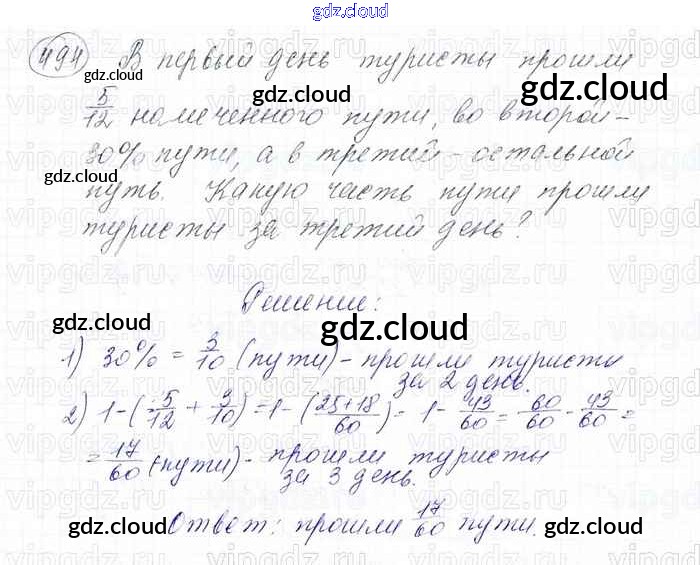 gdz.cloud
494 В первый день туристы прошли
5/12 намеченного пути, во второй -
30% пути, а в третий - остальной
путь. Какую часть пути прошли
туристы за третий день?
Решение:
1) 30% = 3/10 (пути) - прошли туристы
за 2 день.
2) 1-(5/12 + 3/10) = 1 - (25+18/60) = 1 - 43/60 = 60/60 - 43/60 =
= 17/60 (пути) - прошли туристы
за 3 день.
Ответ: прошли 17/60 пути.
gdz.cloud
gdz.cloud
gdz.cloud
gdz.cloud
gdz.cloud
gdz.cloud
gdz.cloud
gdz.cloud
gdz.cloud
gdz.cloud